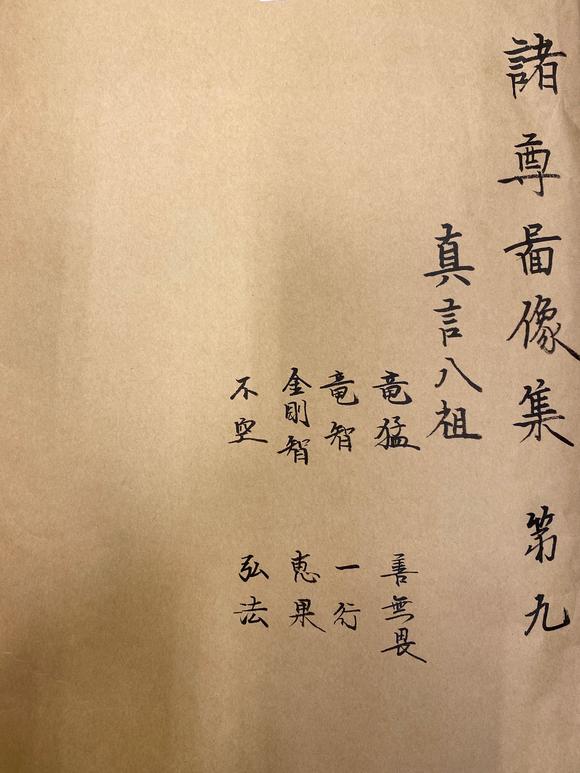 諸尊啚像集 第九
真言八祖
竜猛 善無畏
竜智 一行
金剛智 恵果
不空 弘法